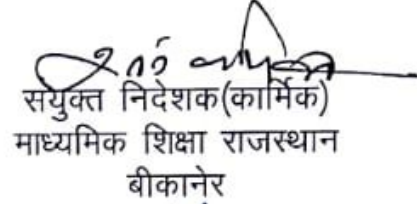 सयुंक्त निदेशक(कार्मिक)
माध्यमिक शिक्षा राजस्थान
बीकानेर